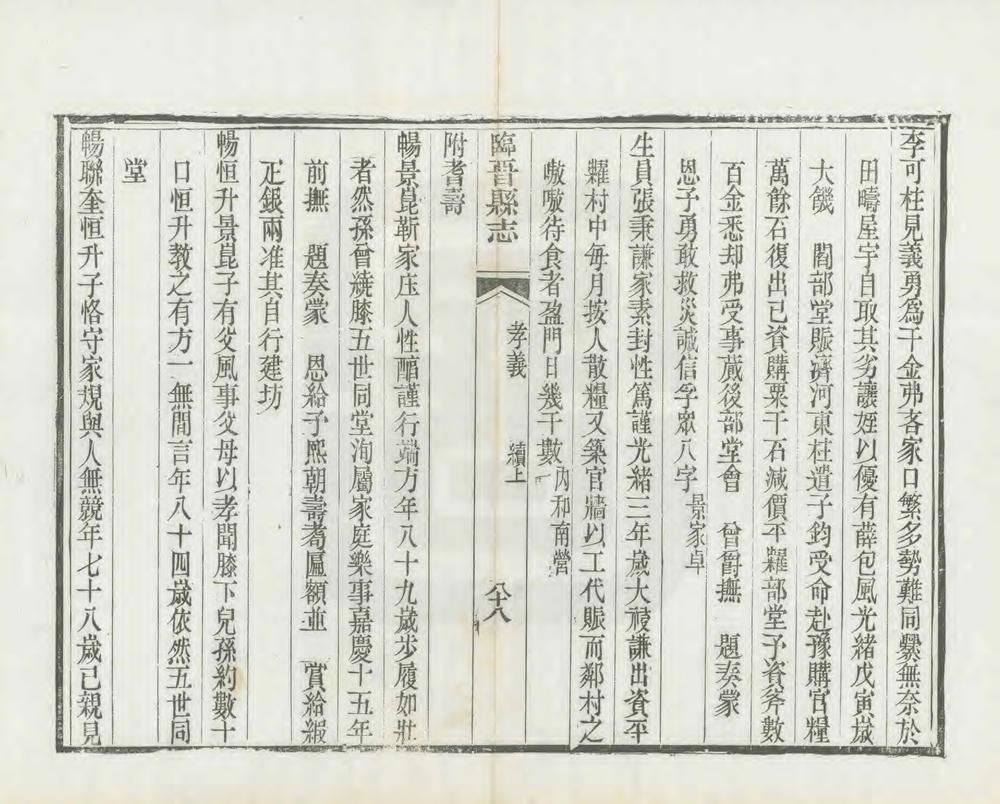 李可柱見義勇爲千金弗吝家口繁多勢難同爨無奈於
田疇屋宇自取其劣讓姪以優有薛包風光緒戊寅歲
大饑　閻部堂賑濟河東柱遣子鈞受命赴豫購官糧
萬餘石復出己資購粟千石減價平糶部堂予資斧數
百金悉却弗受事蕆後部堂會　曾爵撫　題奏蒙
恩予勇敢救災誠信孚衆八字景家卓
生員張秉謙家素封性篤謹光緒三年歲大祲謙出資平
糶村中每月按人散糧又築官牆以工代賑而鄰村之
嗷嗷待食者盈門日幾千數內和南營
臨晉縣志　孝義　續上　八十八
附耆壽
暢景崑靳家庄人性醕謹行端方年八十九歲步履如壯
者然孫曾繞膝五世同堂洵屬家庭樂事嘉慶十五年
前撫　題奏蒙　恩給予熙朝壽耉匾額並　賞給緞
疋銀兩准其自行建坊
暢恒升景崑子有父風事父母以孝聞膝下兒孫約數十
口恒升教之有方一無間言年八十四歲依然五世同
堂
暢聯奎恒升子恪守家規與人無競年七十八歲已親見